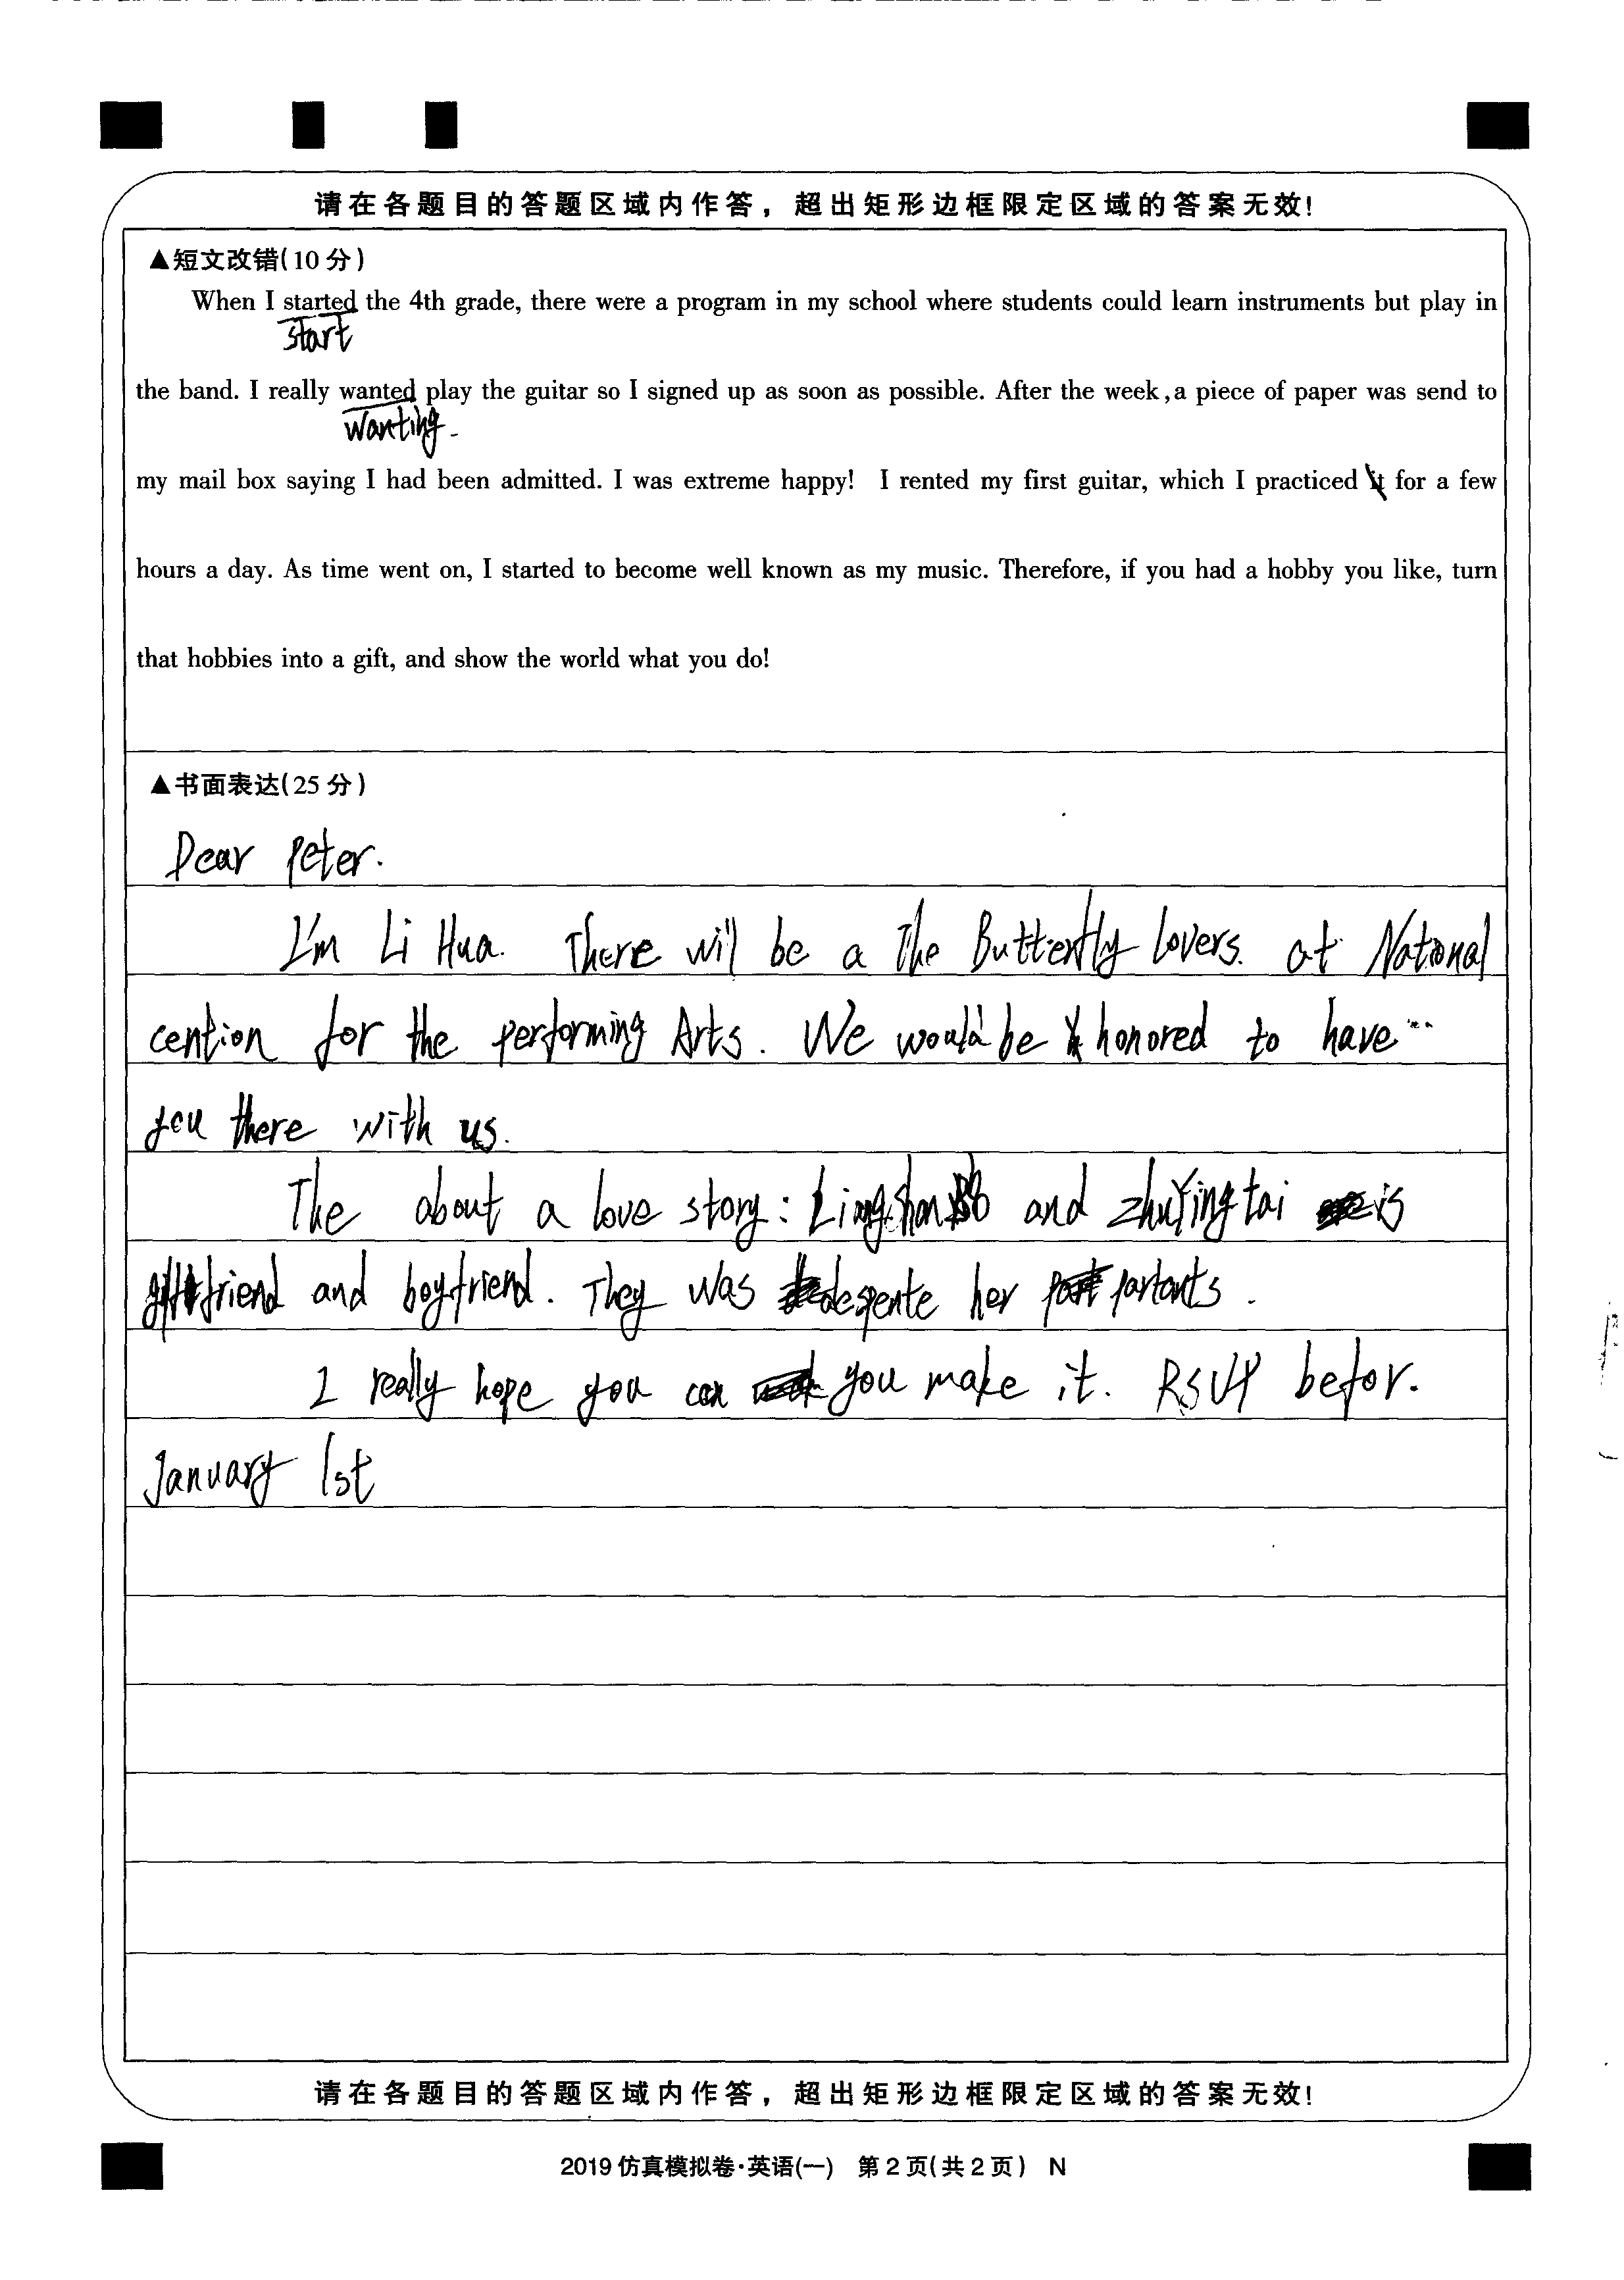 请在各题目的答题区域内作答，超出矩形边框限定区域的答案无效！
▲短文改错(10分)
When I started the 4th grade, there were a program in my school where students could learn instruments but play in
start
the band. I really wanted play the guitar so I signed up as soon as possible. After the week,a piece of paper was send to
wanting
my mail box saying I had been admitted. I was extreme happy! I rented my first guitar, which I practiced it for a few
hours a day. As time went on, I started to become well known as my music. Therefore, if you had a hobby you like, turn
that hobbies into a gift, and show the world what you do!
▲书面表达(25分)
Dear Peter.
I'm Li Hua. There will be a The Butterfly Lovers. at National
cention for the performing Arts. We would be honored to have
you there with us.
The about a love story: and zhuYingtai is
friend and boyfriend. They was despente her partants.
I really hope you can you make it. RSVP befor.
January 1st
请在各题目的答题区域内作答，超出矩形边框限定区域的答案无效！
2019仿真模拟卷·英语(一) 第2页(共2页) N